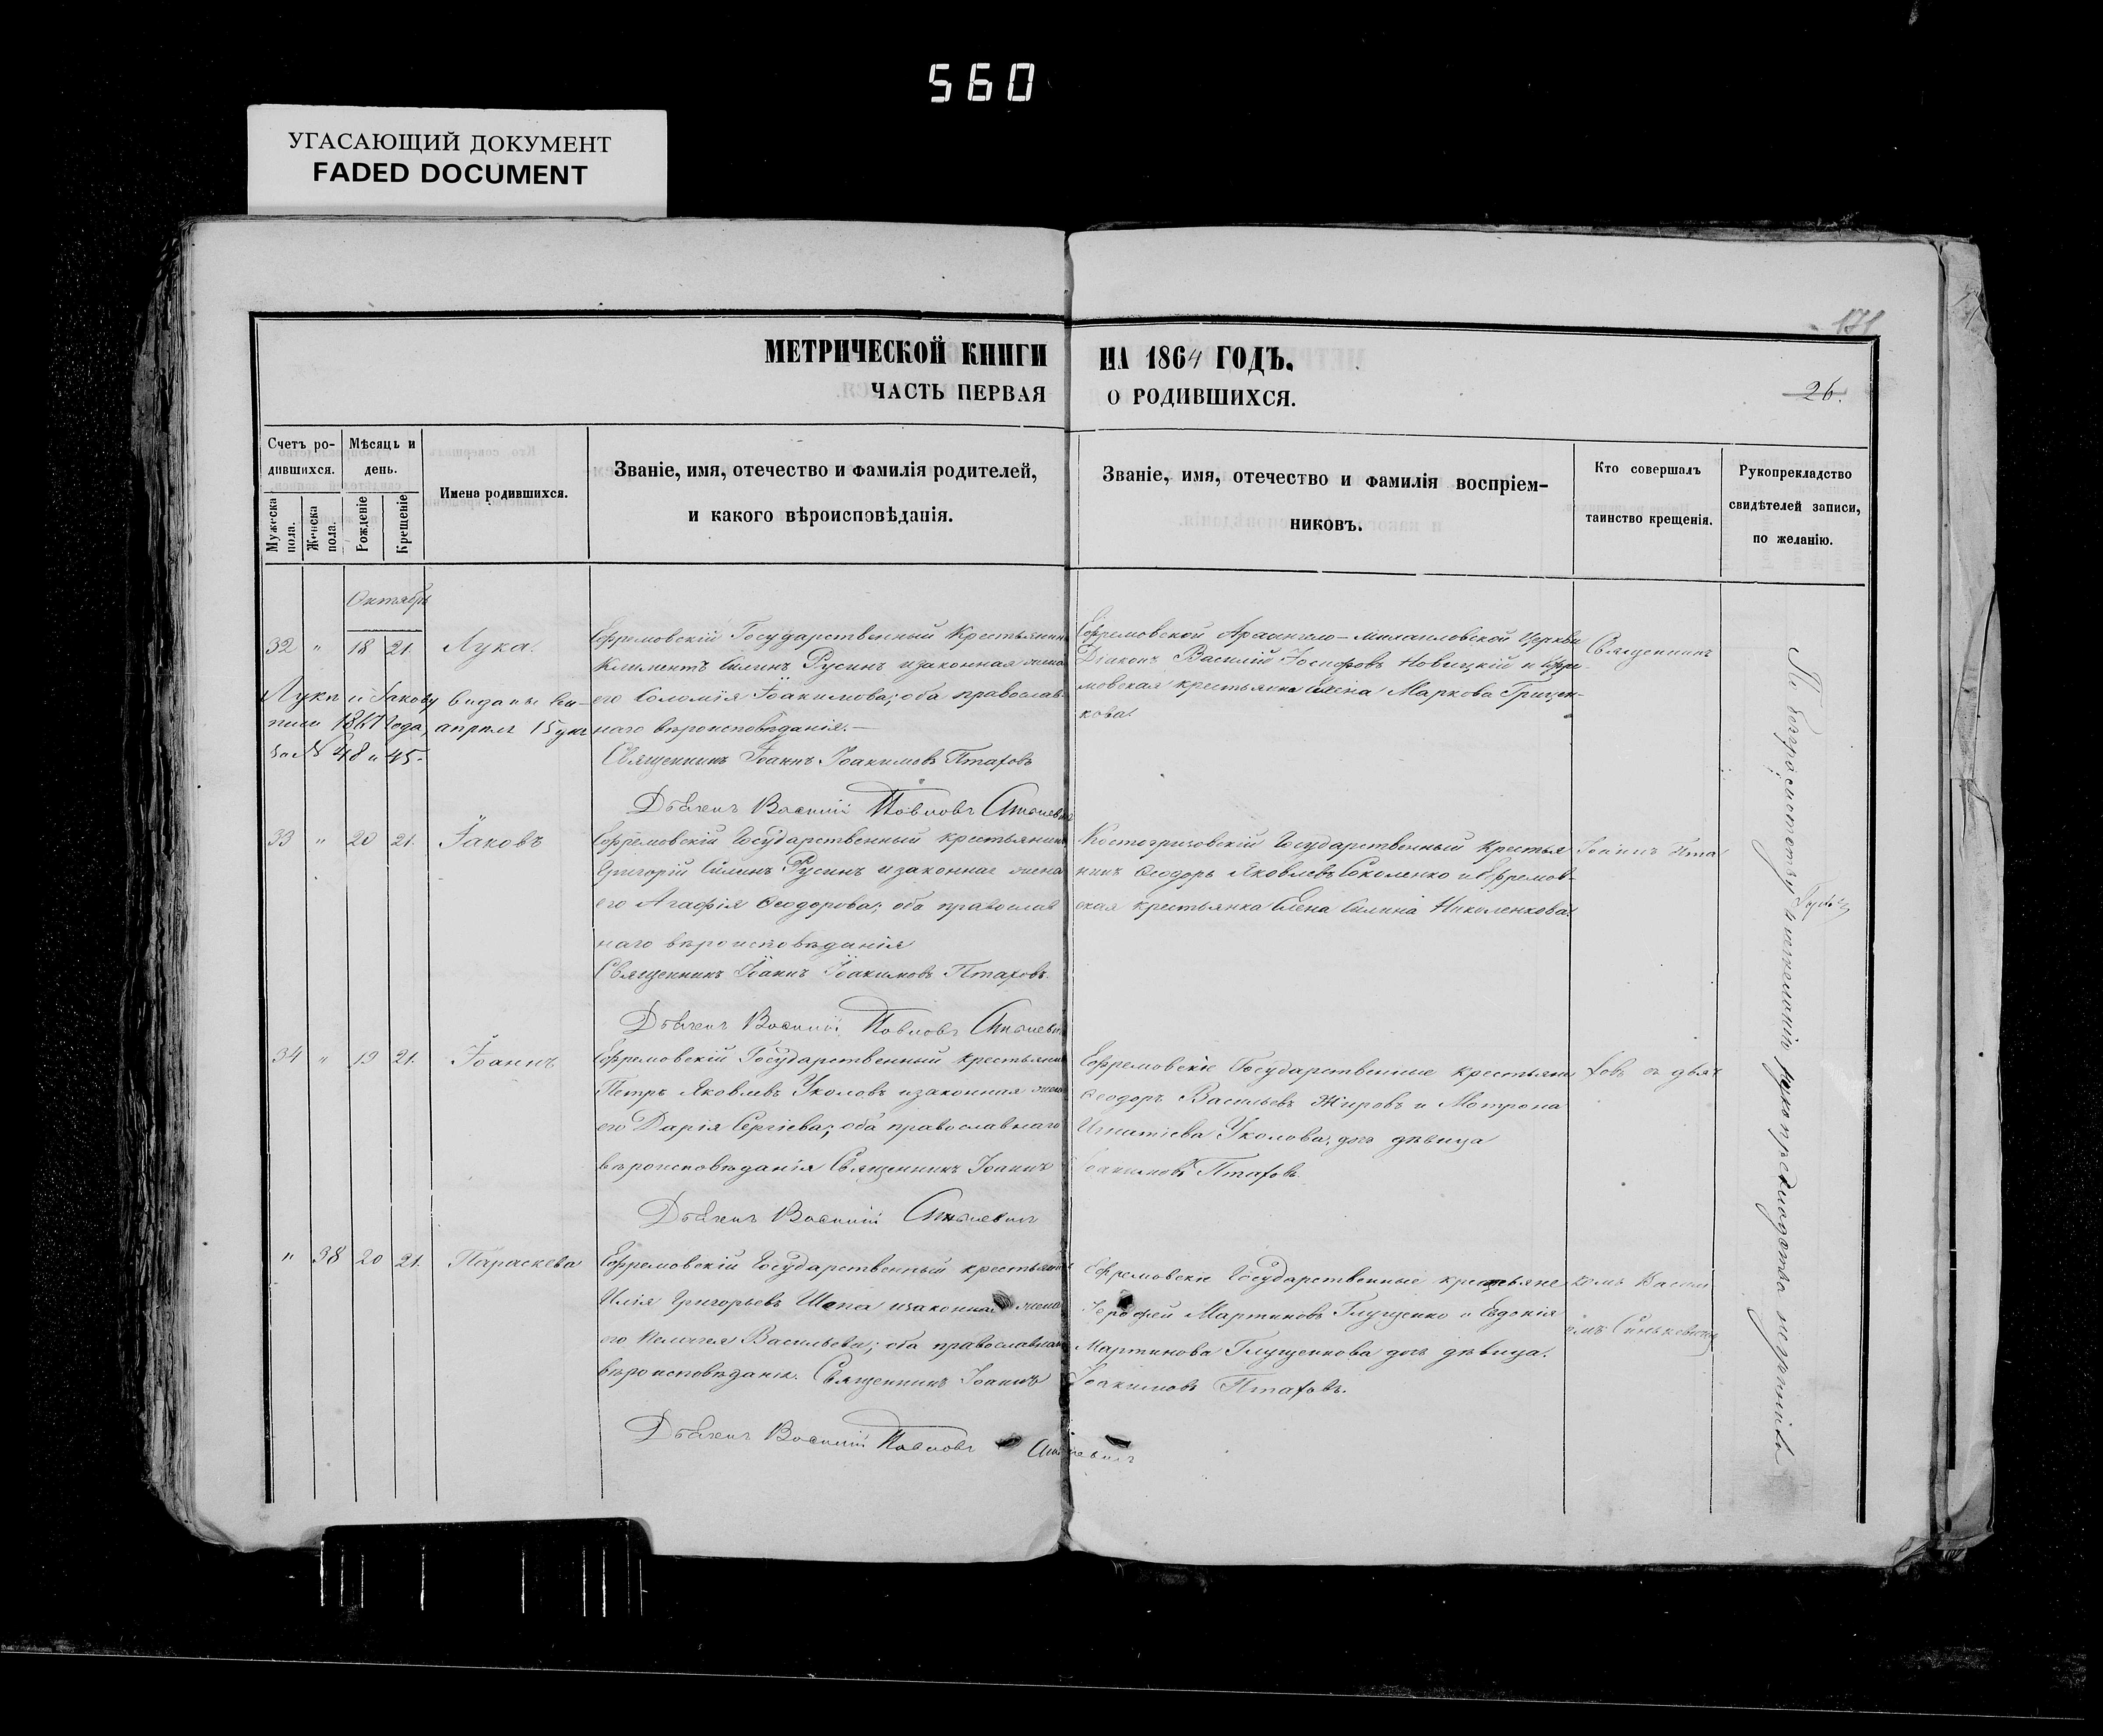 560
УГАСАЮЩИЙ ДОКУМЕНТ
FADED DOCUMENT
171
МЕТРИЧЕСКОЙ КНИГИ НА 1864 ГОДЪ.
ЧАСТЬ ПЕРВАЯ О РОДИВШИХСЯ.
26.
Счетъ ро-
дившихся.
Мужеска
пола.
Женска
пола.
Мѣсяцъ и
день.
Рожденіе
Крещеніе
Имена родившихся.
Званіе, имя, отечество и фамилія родителей,
и какого вѣроисповѣданія.
Званіе, имя, отечество и фамилія воспріем-
никовъ.
Кто совершалъ
таинство крещенія.
Рукопрекладство
свидѣтелей записи,
по желанію.
Октябрь
32 " 18 21. Лука.
Ефремовскій Государственный Крестьянинъ
Климентъ Силинъ Русинъ и законная жена
его Соломія Іоакимова; оба православ-
наго вѣроисповѣданія.—
Священникъ Іоаннъ Іоакимовъ Птаховъ
Василій Павловъ
Ефремовской Архангело-Михаиловской Церкви
Діаконъ Василій Іосифовъ Новицкій и Ефре-
мовская крестьянка Елена Маркова Грицен-
кова.
Священникъ
Луки и Іакову выданы
1861 года, апреля 15
за № 48 и 45.
33 " 20 21. Іаковъ
Ефремовскій Государственный крестьянинъ
Григорій Силинъ Русинъ и законная жена
его Агафія Феодорова; оба православ
наго вѣроисповѣданія
Священникъ Іоаннъ Іоакимовъ Птаховъ.
Василій Павловъ
Государственный Крестья
нинъ Феодоръ Яковлевъ Соколенко и Ефремов-
ская крестьянка Елена Силина Николенкова
Іоаннъ Пта
34 " 19 21. Іоаннъ
Ефремовскій Государственный крестьянинъ
Петръ Яковлевъ Уколовъ и законная жена
его Дарія Сергіева; оба православнаго
вѣроисповѣданія Священникъ Іоаннъ
Іоакимовъ Птаховъ.
Василій
Ефремовскіе Государственные крестьяне
Феодоръ Васильевъ Жировъ и Мотрона
Игнатіева Уколова, дочь дѣвица
ховъ съ дьяч
" 38 20 21. Параскева
Ефремовскій Государственный крестьянинъ
Илія Григорьевъ и законная жена
его Пелагея Васильева; оба православнаго
вѣроисповѣданія. Священникъ Іоаннъ
Іоакимовъ Птаховъ.
Василій Павловъ
Ефремовскіе Государственные крестьяне
Мартиновъ Глущенко и Евдокія
Мартинова Глущенкова дочь дѣвица.
комъ Васили
емъ Синькевичемъ
По безграмотству и рукопрекладства